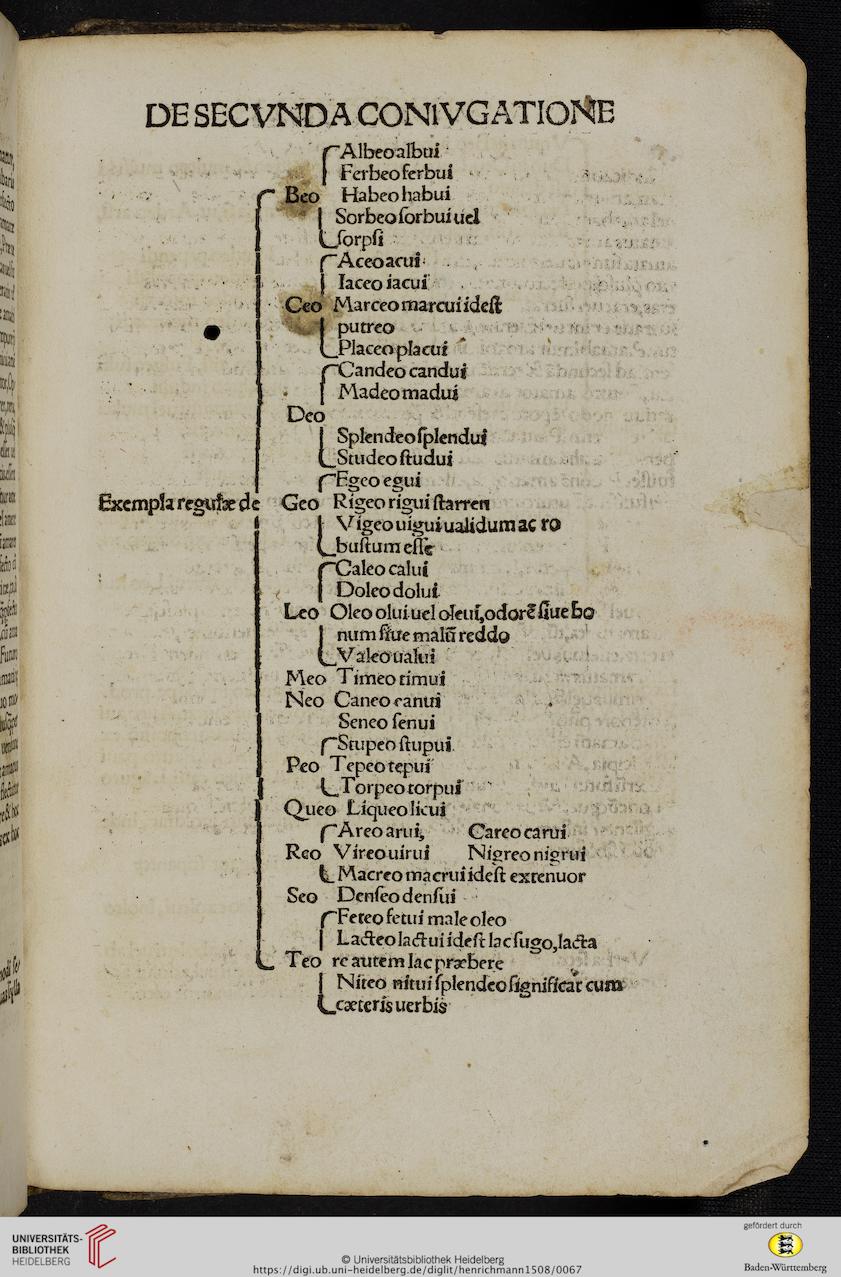 DE SECVNDA CONIVGATIONE
Albeo albui
Ferbeo ferbui
Beo Habeo habui
Sorbeo ſorbui uel
ſorpſi
Aceo acui
Iaceo iacui
Ceo Marceo marcui ideſt
putreo
Placeo placui
Candeo candui
Madeo madui
Deo
Splendeo ſplendui
Studeo ſtudui
Egeo egui
Exempla regulæ de Geo Rigeo rigui ſtarren
Vigeo uigui ualidum ac ro
buſtum eſſe
Caleo calui
Doleo dolui
Leo Oleo olui uel oleui, odorē ſiue bo
num ſiue malū reddo
Valeo ualui
Meo Timeo timui
Neo Caneo canui
Seneo ſenui
Stupeo ſtupui
Peo Tepeo tepui
Torpeo torpui
Queo Liqueo licui
Areo arui, Careo carui
Reo Vireo uirui Nigreo nigrui
Macreo macrui ideſt extenuor
Seo Denſeo denſui
Feteo fetui male oleo
Lacteo lactui ideſt lac ſugo, lacta
Teo re autem lac præbere
Niteo nitui ſplendeo ſignificat cum
cæteris uerbis
UNIVERSITÄTS-
BIBLIOTHEK
HEIDELBERG
© Universitätsbibliothek Heidelberg
https://digi.ub.uni-heidelberg.de/diglit/henrichmann1508/0067
gefördert durch
Baden-Württemberg